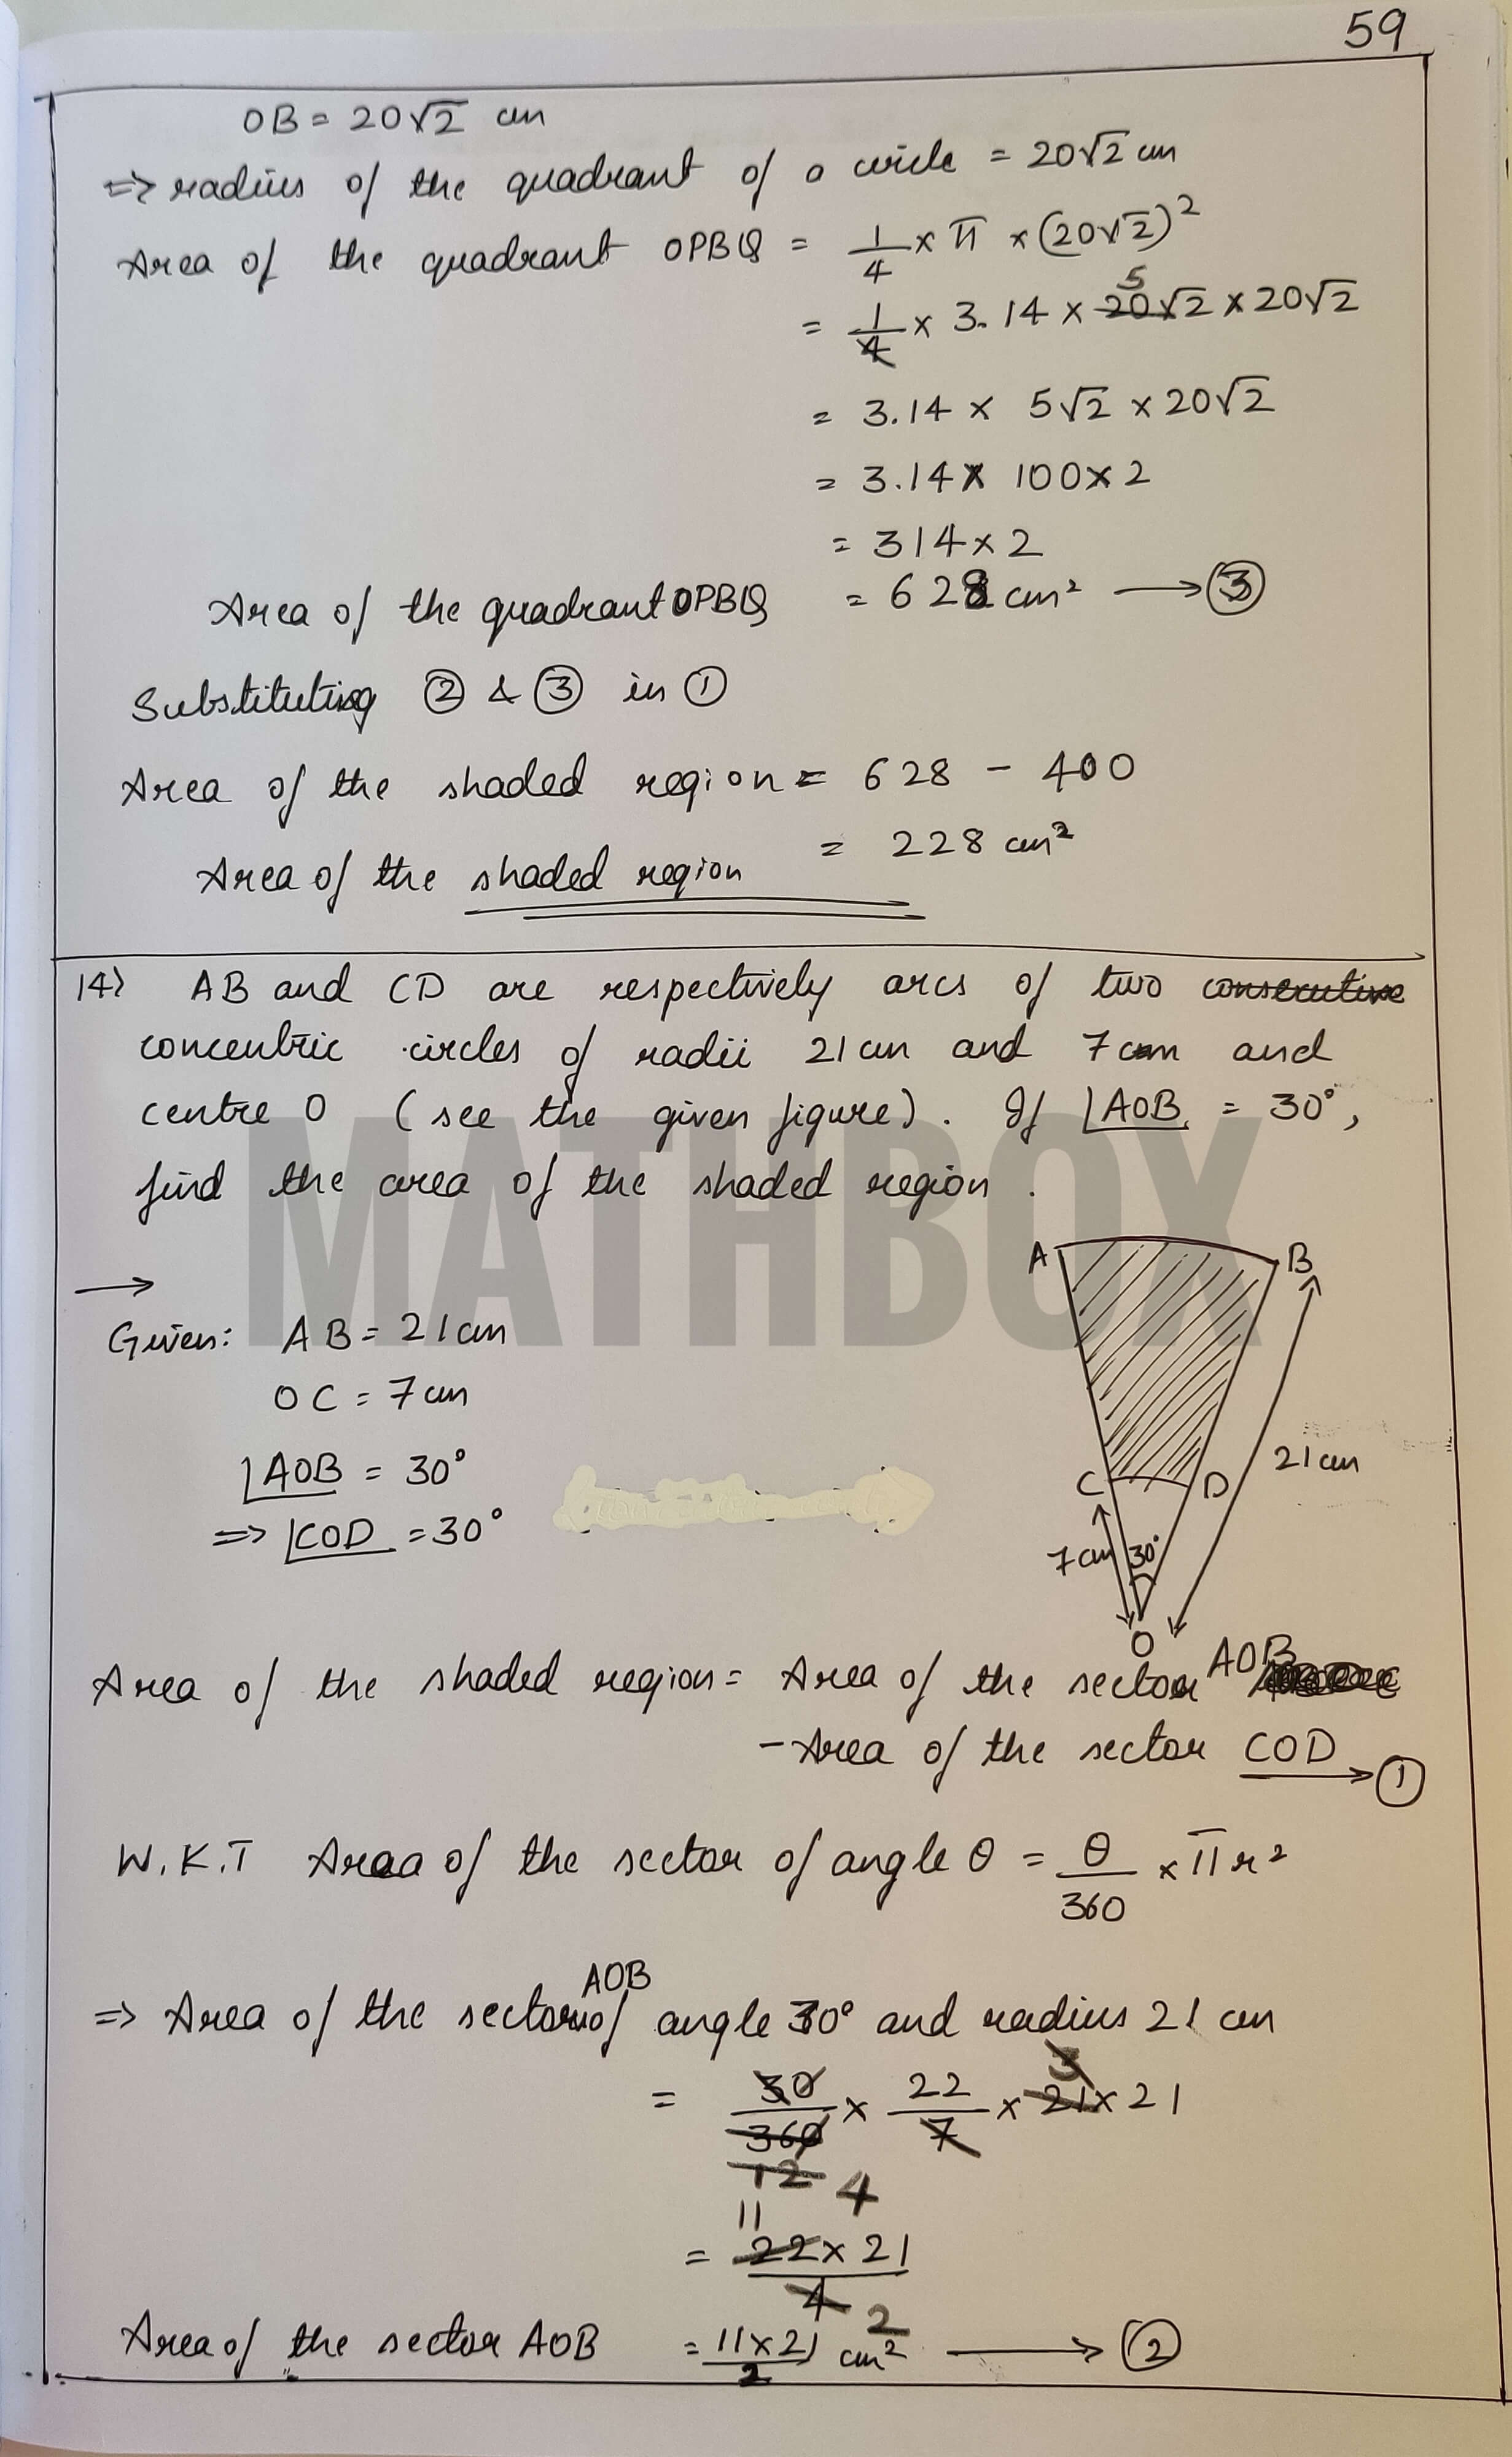 59
OB = 20√2 cm
=> radius of the quadrant of a circle = 20√2 cm
Area of the quadrant OPBQ = 1/4 × π × (20√2)²
= 1/4 × 3.14 × 20√2 × 20√2
5
= 3.14 × 5√2 × 20√2
= 3.14 × 100 × 2
= 314 × 2
Area of the quadrant OPBQ = 628 cm² → ③
Substituting ② & ③ in ①
Area of the shaded region = 628 - 400
= 228 cm²
Area of the shaded region
14) AB and CD are respectively arcs of two consecutive
concentric circles of radii 21 cm and 7 cm and
centre O (see the given figure). If ∠AOB = 30°,
find the area of the shaded region.
MATHBOX
→
Given: AB = 21 cm
OC = 7 cm
∠AOB = 30°
=> ∠COD = 30°
A B
C D
21 cm
7 cm 30°
O
Area of the shaded region = Area of the sector AOB
- Area of the sector COD → ①
W.K.T Area of the sector of angle θ = θ/360 × πr²
=> Area of the sector AOB of angle 30° and radius 21 cm
= 30/360 × 22/7 × 21 × 21
3
12 4
11
= 22 × 21/4
2
Area of the sector AOB = 11×21/2 cm² → ②